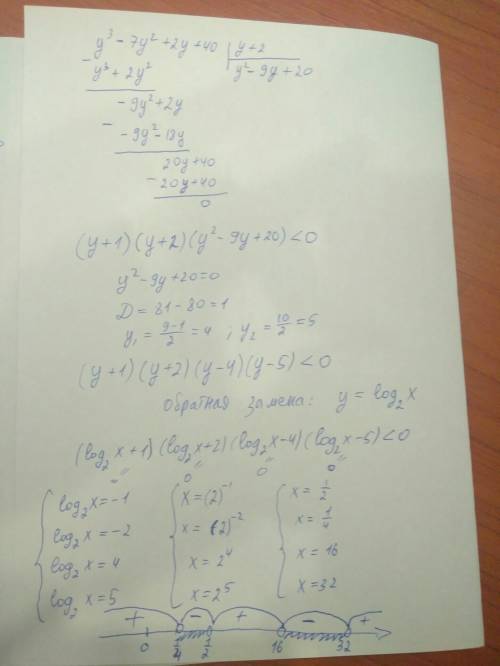 y³ - 7y² + 2y + 40 | y + 2
- y³ + 2y² | y² - 9y + 20
- 9y² + 2y
- - 9y² - 18y
20y + 40
- 20y + 40
0
(y+1)(y+2)(y² - 9y + 20) < 0
y² - 9y + 20 = 0
D = 81 - 80 = 1
y₁ = (9-1)/2 = 4 ; y₂ = 10/2 = 5
(y+1)(y+2)(y-4)(y-5) < 0
Обратная замена: y = log₂x
(log₂x + 1)(log₂x + 2)(log₂x - 4)(log₂x - 5) < 0
0 0 0
log₂x = -1 x = (2)⁻¹ x = 1/2
log₂x = -2 x = (2)⁻² x = 1/4
log₂x = 4 x = 2⁴ x = 16
log₂x = 5 x = 2⁵ x = 32
+ - + - +
0 1/4 1/2 16 32